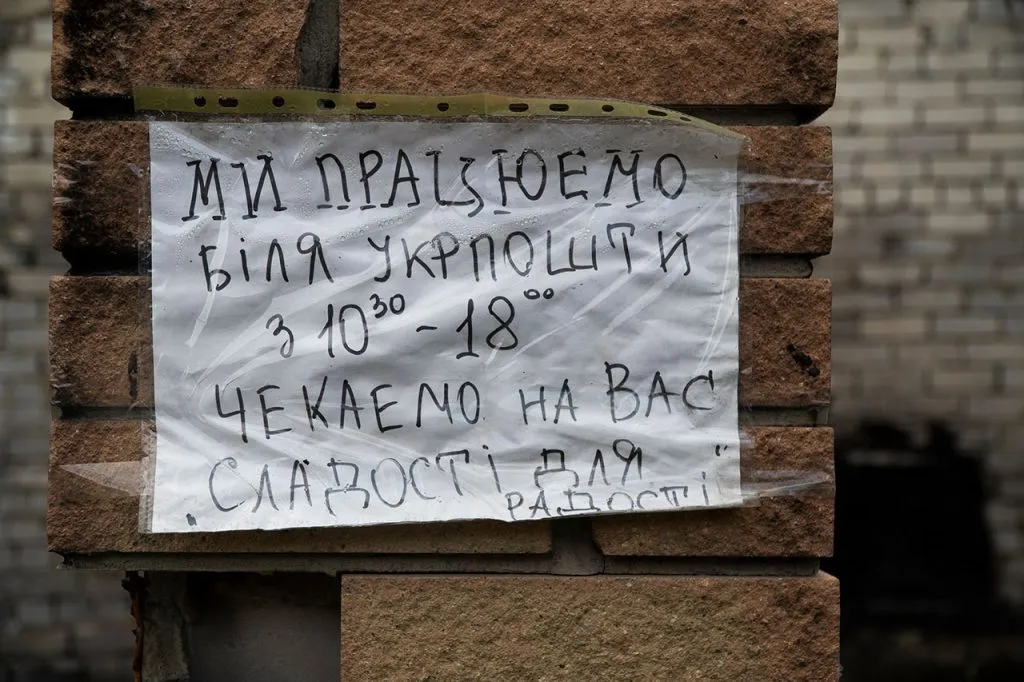 МИ ПРАЦЮЕМО
БІЛЯ УКРПОШТИ
З 10³⁰ - 18⁰⁰
ЧЕКАЕМО НА ВАС
„СЛАДОСТІ ДЛЯ
РАДОСТІ"